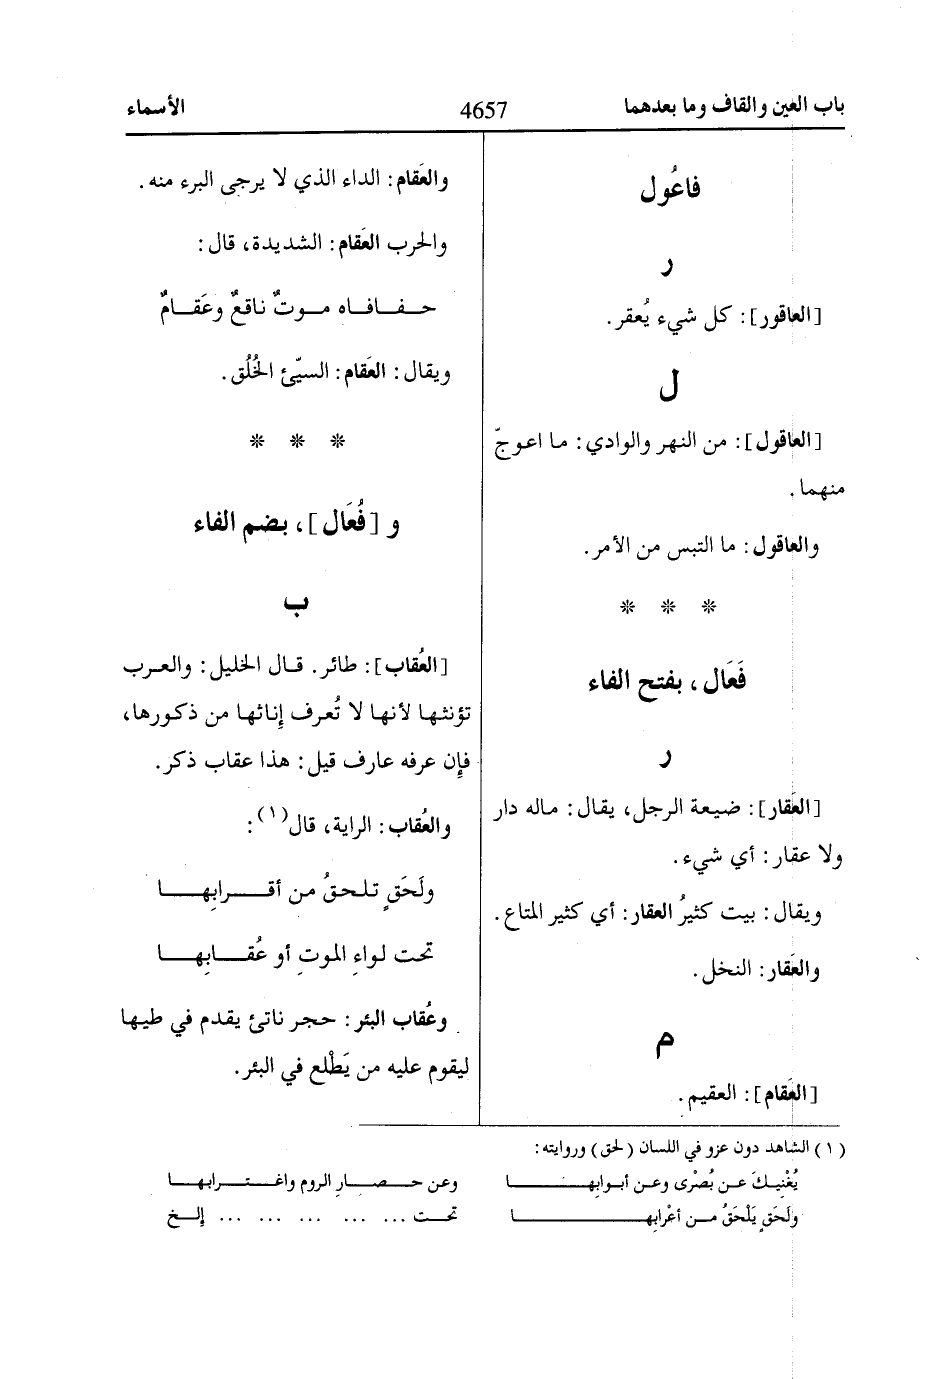 باب العين والقاف وما بعدهما 4657 الأسماء
فاعُول
ر
[العاقور]: كل شيء يُعقر.
ل
[العاقول]: من النهر والوادي: ما اعوجّ
منهما.
والعاقول: ما التبس من الأمر.
* * *
فَعَال، بفتح الفاء
ر
[العَقار]: ضيعة الرجل، يقال: ماله دار
ولا عقار: أي شيء.
ويقال: بيت كثيرُ العقار: أي كثير المتاع.
والعَقار: النخل.
م
[العَقام]: العقيم.
والعَقام: الداء الذي لا يرجى البرء منه.
والحرب العَقام: الشديدة، قال:
حفافاه موتٌ ناقعٌ وعَقامٌ
ويقال: العَقام: السيّئ الخُلُق.
* * *
و [فُعَال]، بضم الفاء
ب
[العُقاب]: طائر. قال الخليل: والعرب
تؤنثها لأنها لا تُعرف إناثها من ذكورها،
فإِن عرفه عارف قيل: هذا عقاب ذكر.
والعُقاب: الراية، قال(١):
ولَحَقٍ تلحقُ من أقرابِها
تحت لواءِ الموتِ أو عُقابِها
وعُقاب البئر: حجر ناتئ يقدم في طيها
ليقوم عليه من يَطْلع في البئر.
(١) الشاهد دون عزو في اللسان (لحق) وروايته:
يُغْنِيكَ عن بُصْرى وعن أبوابِها وعن حصارِ الروم واغترابِها
ولَحَقٍ يَلْحَقُ من أعْرابِها تحت ... ... ... ... ... إلخ